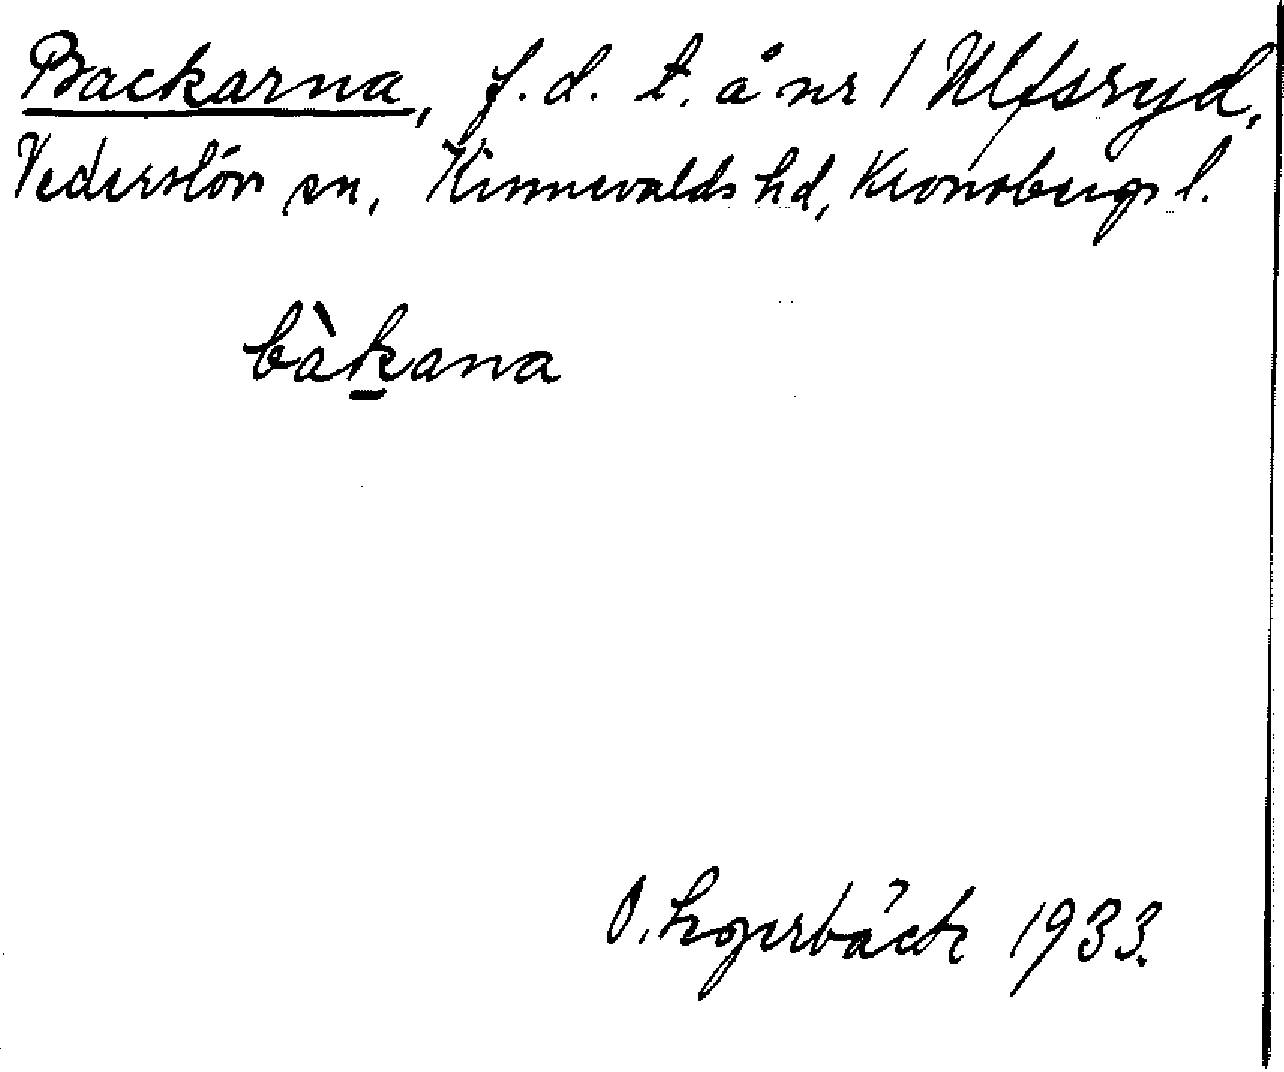 Backarna, f.d. t. å nr 1 Ulfsryd,
Vederslöv sn, Kinnevalds hd, Kronobergs l.
bàk̲ana
O. 1933.